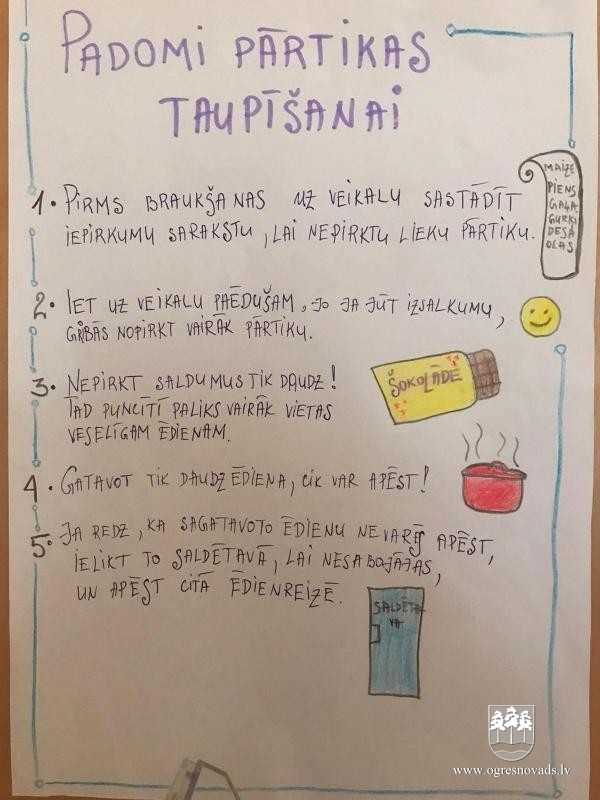 PADOMI PĀRTIKAS
TAUPĪŠANAI
1. PIRMS BRAUKŠANAS UZ VEIKALU SASTĀDĪT
IEPIRKUMU SARAKSTU, LAI NEPIRKTU LIEKU PĀRTIKU.
MAIZE
PIENS
GAĻA
GURĶI
DESA
OLAS
2. IET UZ VEIKALU PAĒDUŠAM, JO JA JŪT IZSALKUMU,
GRIBĀS NOPIRKT VAIRĀK PĀRTIKU.
3. NEPIRKT SALDUMUS TIK DAUDZ!
TAD PUNCĪTĪ PALIKS VAIRĀK VIETAS
VESELĪGAM ĒDIENAM.
ŠOKOLĀDE
4. GATAVOT TIK DAUDZ ĒDIENA, CIK VAR APĒST!
5. JA REDZ, KA SAGATAVOTO ĒDIENU NEVARĒS APĒST,
IELIKT TO SALDĒTAVĀ, LAI NESABOJĀJAS,
UN APĒST CITĀ ĒDIENREIZĒ.
SALDĒTA-
VA
www.ogresnovads.lv